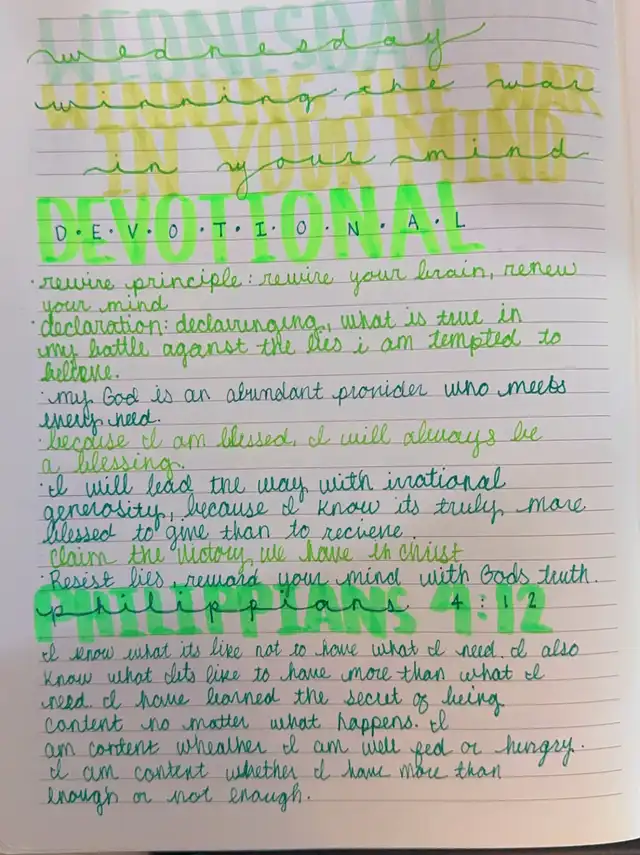 WEDNESDAY
wednesday
WINNING THE WAR
winning the war
IN YOUR MIND
in your mind
DEVOTIONAL
D·E·V·O·T·I·O·N·A·L
·rewire principle: rewire your brain, renew
your mind
·declaration: declaurenging, what is true in
my battle against the lies i am tempted to
believe.
·my God is an abundant provider who meets
every need.
·because I am blessed, I will always be
a blessing.
·I will lead the way with irrational
generosity, because I know its truly more
blessed to give than to recieve.
claim the victory we have in Christ
·Resist lies, reward your mind with Gods truth.
PHILIPPIANS 4:12
philippians 4:12
I know what its like not to have what I need. I also
know what its like to have more than what I
need. I have learned the secret of being
content no matter what happens. I
am content wheather I am well fed or hungry.
I am content whether I have more than
enough or not enough.